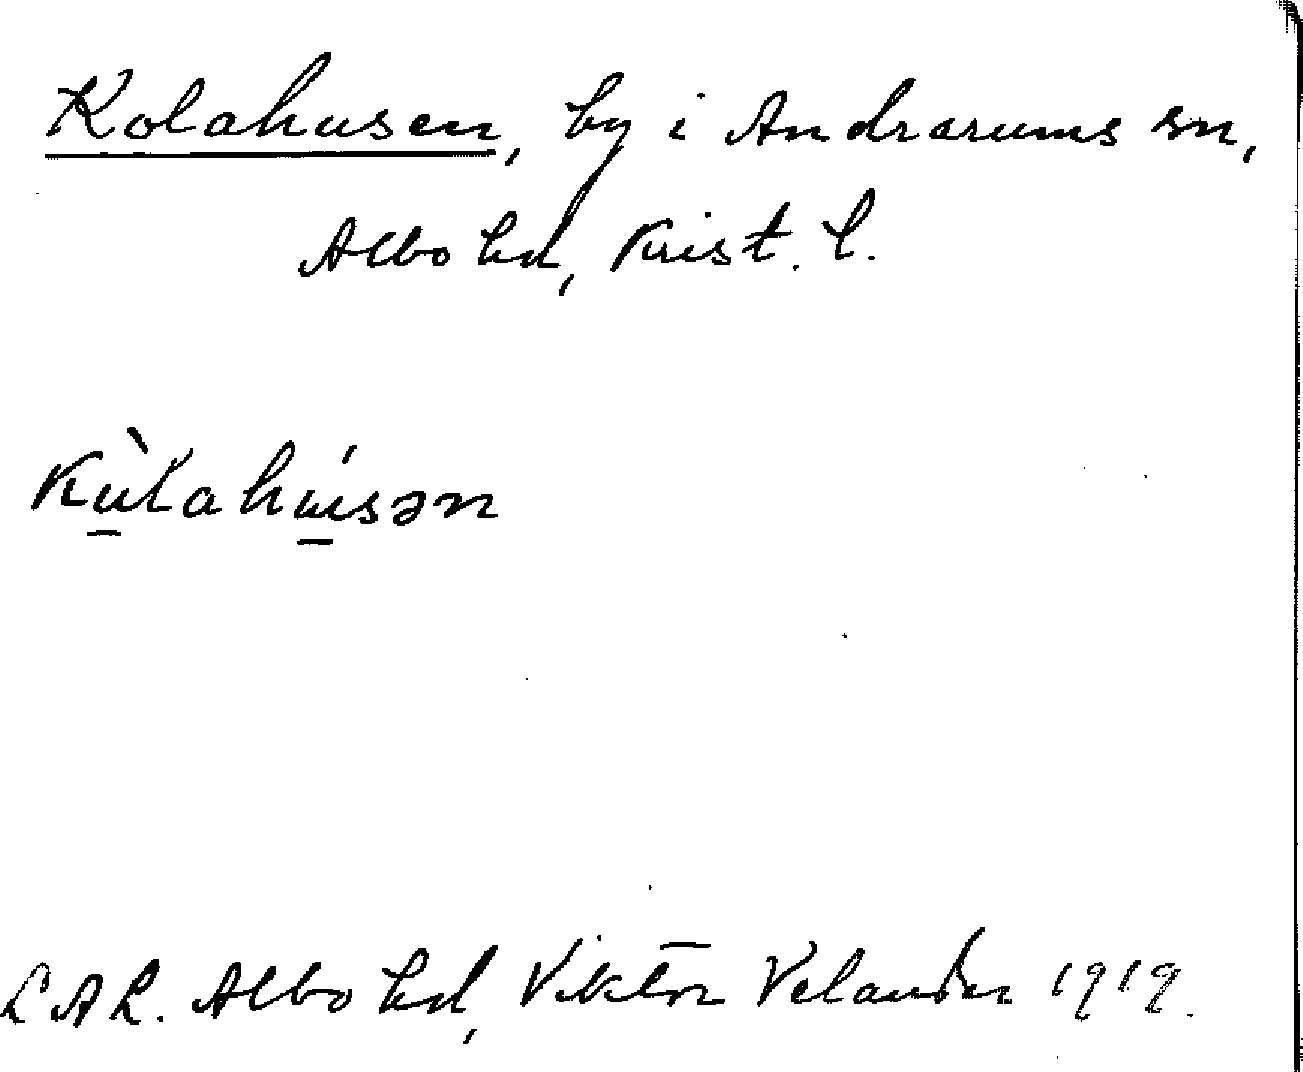 Kolahusen, by i Andrarums sn,
Albo hd, Krist. l.
Kùlahúsən
LAL. Albo hd, Viktor Velander 1919.